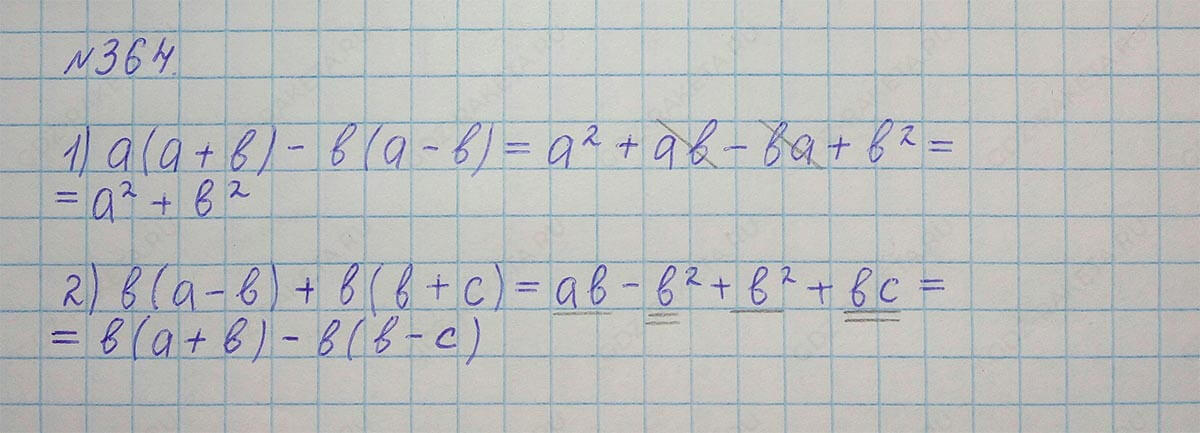 №364.
1) a(a + b) - b(a - b) = a² + ab - ba + b² =
= a² + b²
2) b(a - b) + b(b + c) = ab - b² + b² + bc =
= b(a + b) - b(b - c)